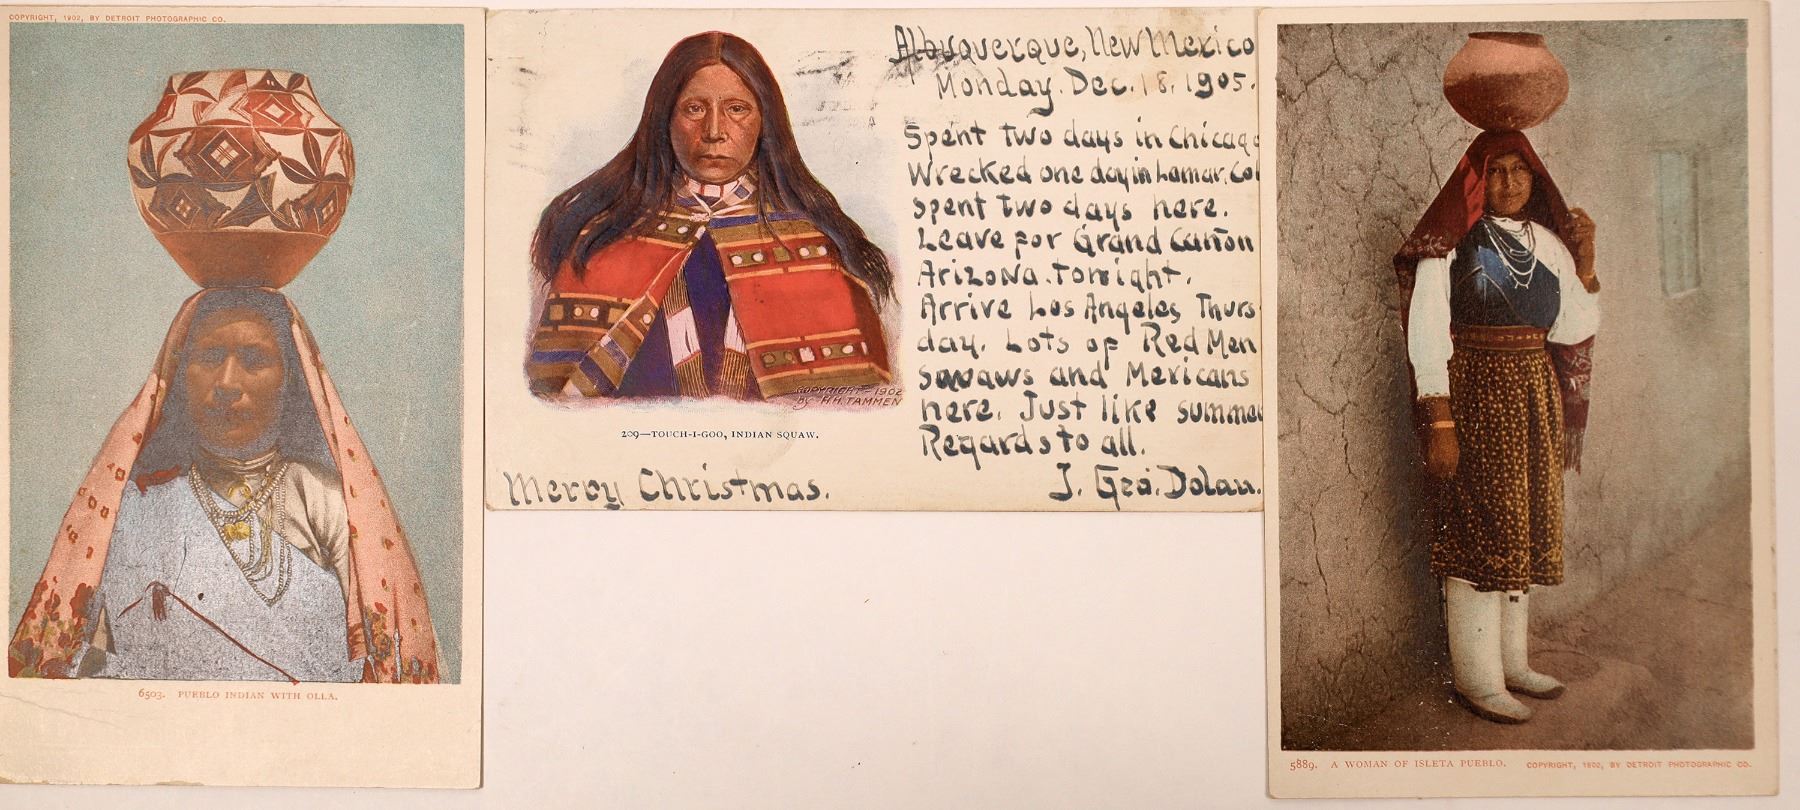 COPYRIGHT, 1902, BY DETROIT PHOTOGRAPHIC CO.
6503. PUEBLO INDIAN WITH OLLA.
COPYRIGHT 1902
by H.H. TAMMEN
209—TOUCH-I-GOO, INDIAN SQUAW.
Albuquerque, New Mexico
Monday. Dec. 18. 1905.
Spent two days in Chicago
Wrecked one day in Lamar, Col
Spent two days here.
Leave for Grand Cañon
Arizona. tonight.
Arrive Los Angeles Thurs
day. Lots of Red Men
Squaws and Mexicans
here. Just like summer
Regards to all.
J. Geo. Dolan.
Merry Christmas.
5889. A WOMAN OF ISLETA PUEBLO. COPYRIGHT, 1902, BY DETROIT PHOTOGRAPHIC CO.